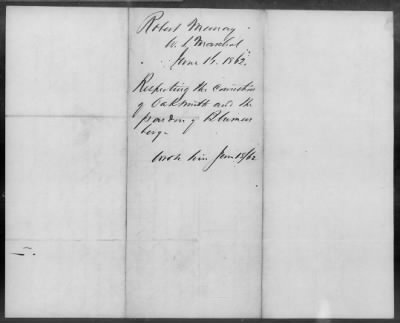 Robert Murray
U. S. Marshal
June 14. 1862.
Respecting the conviction
of Oaksmith and the
pardon of Blumen
berg.
Wrote him June 18/62